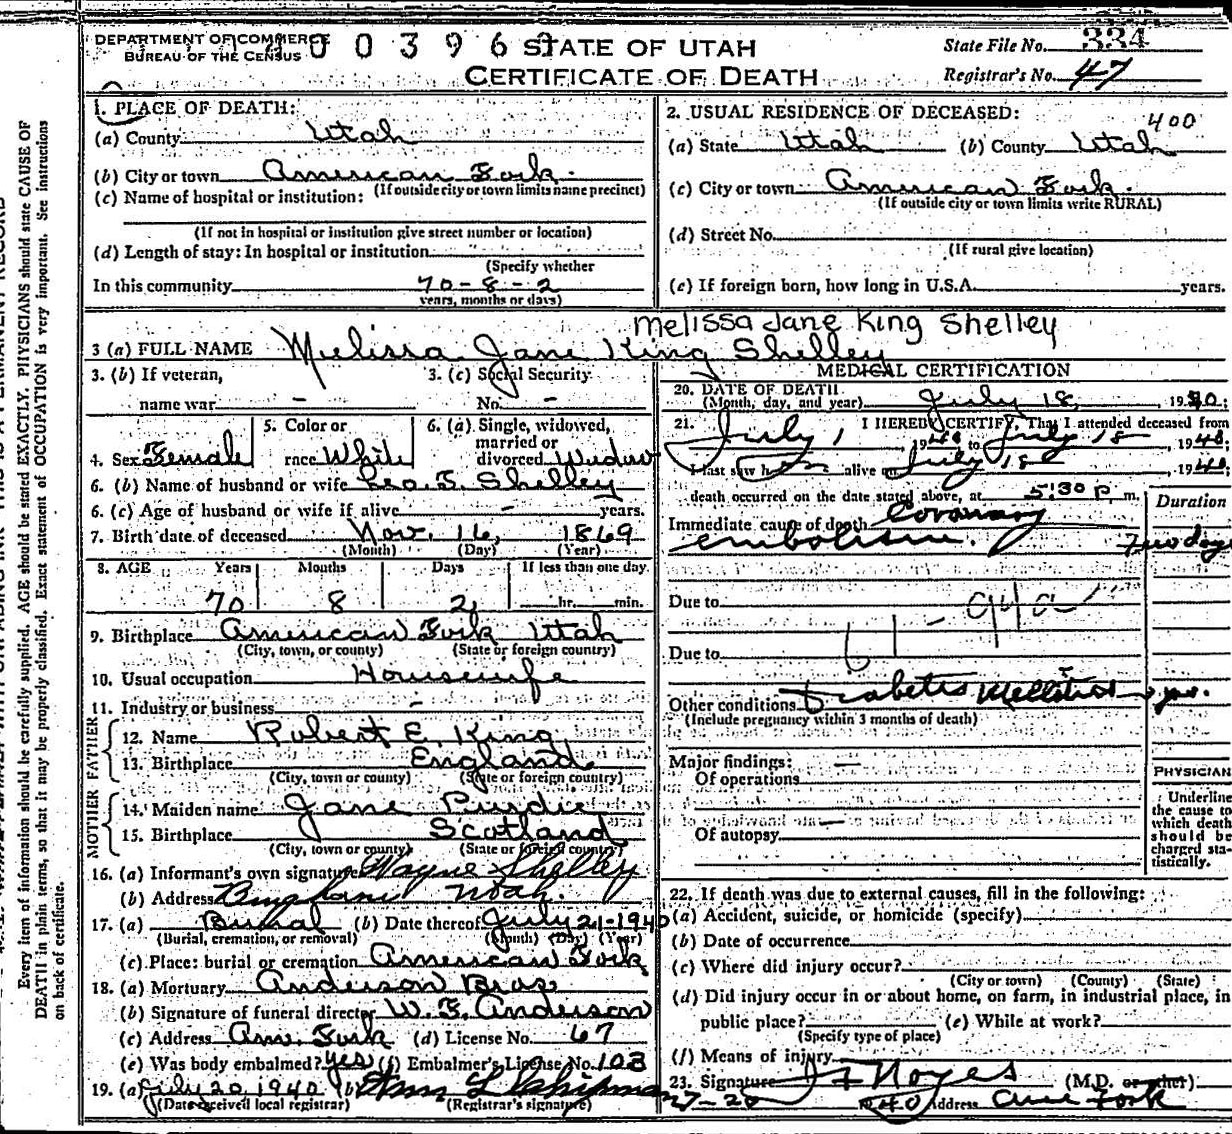 DEPARTMENT OF COMMERCE
BUREAU OF THE CENSUS
STATE OF UTAH
CERTIFICATE OF DEATH
State File No. 334
Registrar's No. 47
1. PLACE OF DEATH:
(a) County Utah
(b) City or town American Fork.
(If outside city or town limits name precinct)
(c) Name of hospital or institution:
(If not in hospital or institution give street number or location)
(d) Length of stay: In hospital or institution
(Specify whether
In this community 70-8-2
years, months or days)
2. USUAL RESIDENCE OF DECEASED:
400
(a) State Utah (b) County Utah
(c) City or town American Fork.
(If outside city or town limits write RURAL)
(d) Street No.
(If rural give location)
(e) If foreign born, how long in U.S.A. years.
Melissa Jane King Shelley
3 (a) FULL NAME Melissa Jane King Shelley
3. (b) If veteran, name war -
3. (c) Social Security No. -
4. Sex Female
5. Color or race White
6. (a) Single, widowed, married or divorced Widow
6. (b) Name of husband or wife Leo. T. Shelley
6. (c) Age of husband or wife if alive - years.
7. Birth date of deceased Nov. 16, 1869
(Month) (Day) (Year)
8. AGE Years Months Days If less than one day
70 8 2 hr. min.
9. Birthplace American Fork Utah
(City, town, or county) (State or foreign country)
10. Usual occupation Housewife
11. Industry or business -
FATHER
12. Name Robert E. King
13. Birthplace England
(City, town or county) (State or foreign country)
MOTHER
14. Maiden name Jane Purdie
15. Birthplace Scotland
(City, town or county) (State or foreign country)
16. (a) Informant's own signature Wayne Shelley
(b) Address Bingham Utah.
17. (a) Burial (b) Date thereof July 21-1940
(Burial, cremation, or removal) (Month) (Day) (Year)
(c) Place: burial or cremation American Fork
18. (a) Mortuary Anderson Bros
(b) Signature of funeral director W. E. Anderson
(c) Address Am. Fork (d) License No. 67
(e) Was body embalmed? yes (f) Embalmer's License No. 103
19. (a) July 20 1940 (b)
(Date received local registrar) (Registrar's signature)
MEDICAL CERTIFICATION
20. DATE OF DEATH
(Month, day, and year) July 18, 1940;
21. I HEREBY CERTIFY, That I attended deceased from
July 1, 1940 to July 18, 1940.
I last saw her alive on July 18, 1940.
death occurred on the date stated above, at 5:30 P. m.
Duration
Immediate cause of death Coronary
embolism. Two days
Due to
Due to
Other conditions Diabetes Mellitus
(Include pregnancy within 3 months of death)
Major findings: —
Of operations
Of autopsy —
PHYSICIAN
Underline the cause to which death should be charged statistically.
22. If death was due to external causes, fill in the following:
(a) Accident, suicide, or homicide (specify)
(b) Date of occurrence
(c) Where did injury occur?
(City or town) (County) (State)
(d) Did injury occur in or about home, on farm, in industrial place, in
public place? (e) While at work?
(Specify type of place)
(f) Means of injury
23. Signature Noyes (M.D. or other)
7-20 Address Am Fork
Every item of information should be carefully supplied. AGE should be stated EXACTLY. PHYSICIANS should state CAUSE OF
DEATH in plain terms, so that it may be properly classified. Exact statement of OCCUPATION is very important. See instructions
on back of certificate.